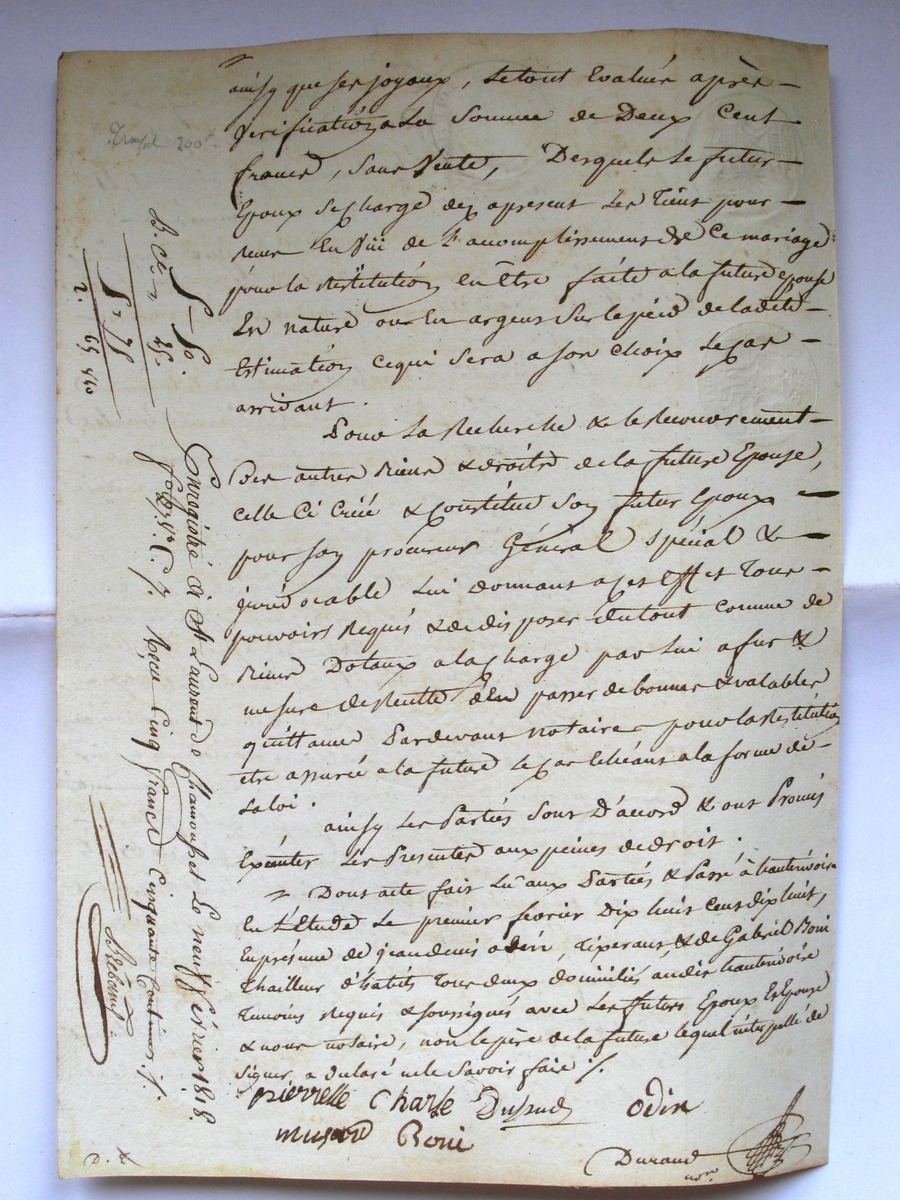 ainsy que ses joyaux, Le tout Evalué après
Verification a La Somme de Deux Cent
francs, Sans Vente, Desquels Le futur
Epoux se charge dez apresent Les Tiens pour
reçus En Vüe de L'acomplissement de Ce mariage
pour la restitution en Être faite a la future epouse
En nature ou En argent Sur le pied de ladite
Estimation ce qui Sera a son choix Le cas
arrivant.
Pour La Recherche & le Recouvrement
Des autres Biens & droits de la future Epouse,
celle Ci Créé & Constitue Son futur Epoux
pour son procureur Général spécial &
irrévocable Lui donnant a cet Effet Tous
pouvoirs Requis & de disposer du tout comme de
Biens Dotaux a la charge par Lui a fur &
mesure de Recette d'En passer de bonnes & valables
quittances Pardevant notaire pour la Restitution
être assurée a la future le cas échéant a la forme de
La loi.
ainsy Les Parties Sont D'accord & ont Promis
Exécuter Les Presentes aux peines de droit.
Dont acte fait Lu aux Parties & Passé à hauterivoire
En L'Étude Le premier fevrier Dix huit Cent dix huit,
En présence de jean denis odin, Tisserant, & de Gabriel Boni
Thailleur d'habits Tous deux domiciliés audit hauterivoire
Temoins Requis & soussignés avec Les futurs Epoux Et Epouse
& nous notaire, non le père de la future lequel interpellé de
signer a déclaré ne le Savoir faire ./.
pierrette Charle Dussud odin
musard Boni
Durand
not.re
D. X.
Enregistré à St Laurent de Chamousset Le neuf février 1818.
fo. C. 7. Reçu Cinq francs Cinquante Centimes ./.
5 – 50.
55.